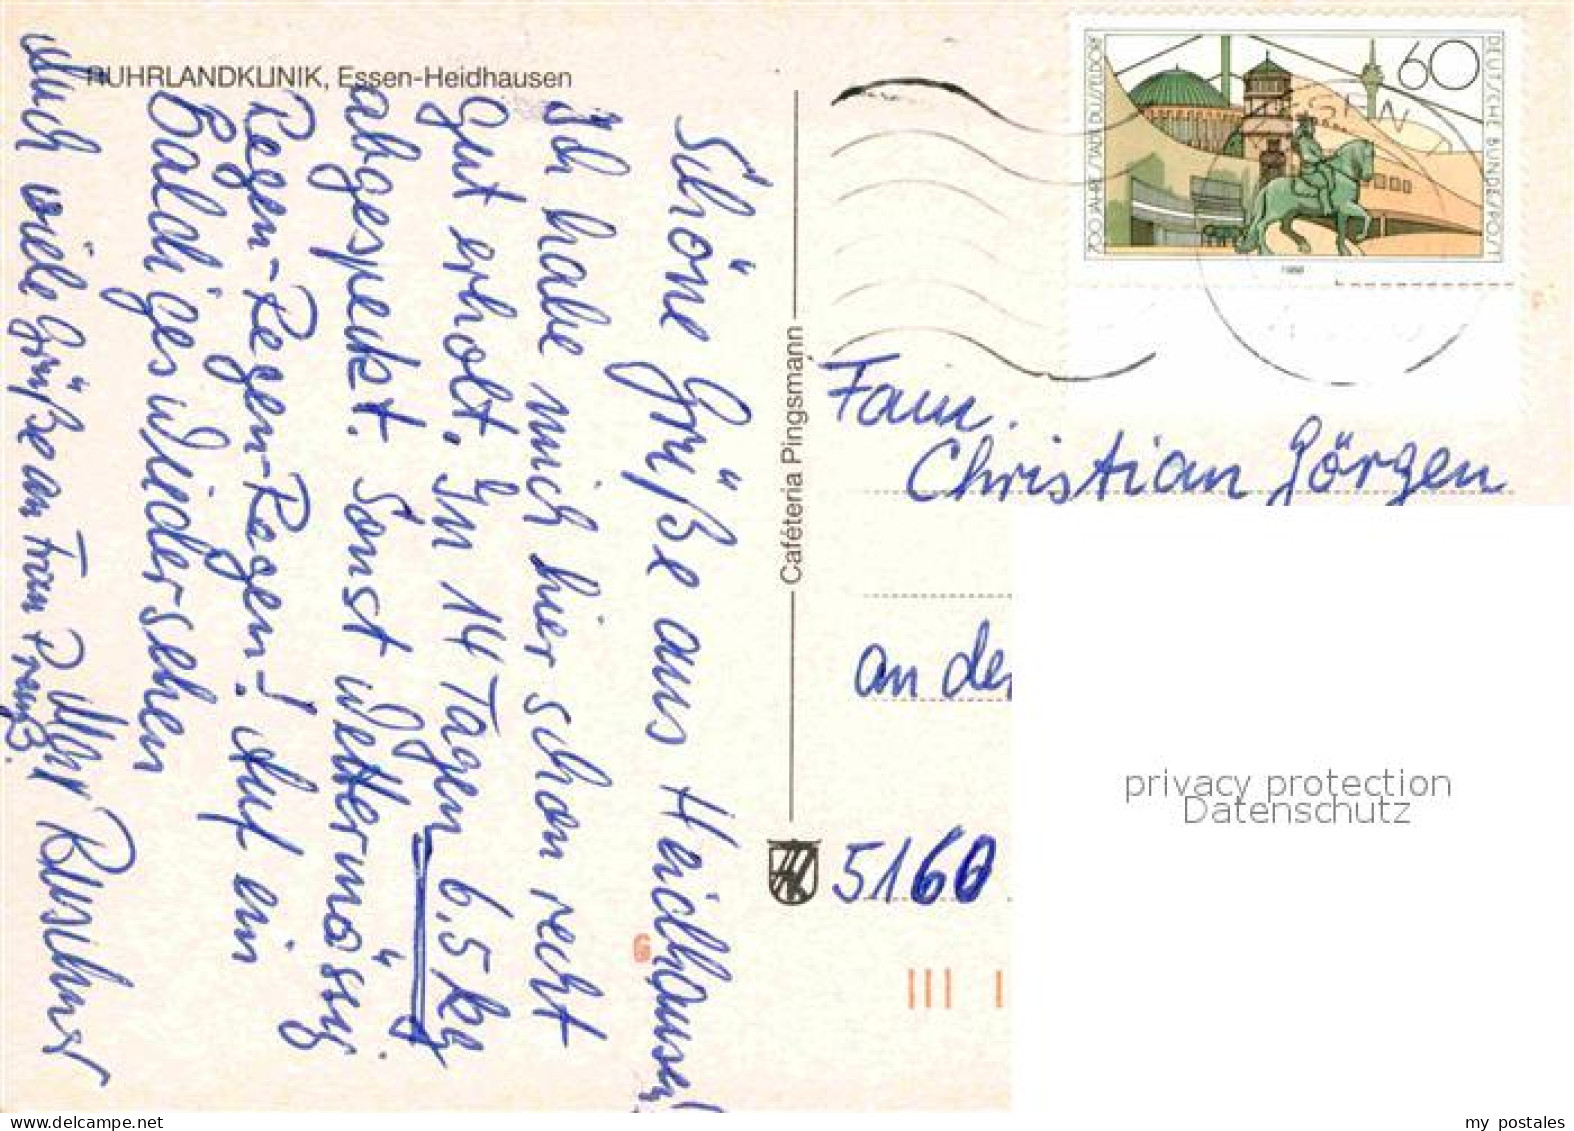 RUHRLANDKLINIK, Essen-Heidhausen
Schöne Grüße aus Heidhausen!
Ich habe mich hier schon recht
gut erholt. In 14 Tagen 6,5 kg
abgespeckt. Sonst Wettermässig
Regen-Regen-Regen-! Auf ein
Baldiges Wiedersehen
Auch viele Grüße an Frau Preuß.
Caféteria Pingsmann
700 JAHRE STADT DÜSSELDORF
60
DEUTSCHE BUNDESPOST
1988
Fam.
Christian Görgen
an der
5160
privacy protection
Datenschutz
my postales